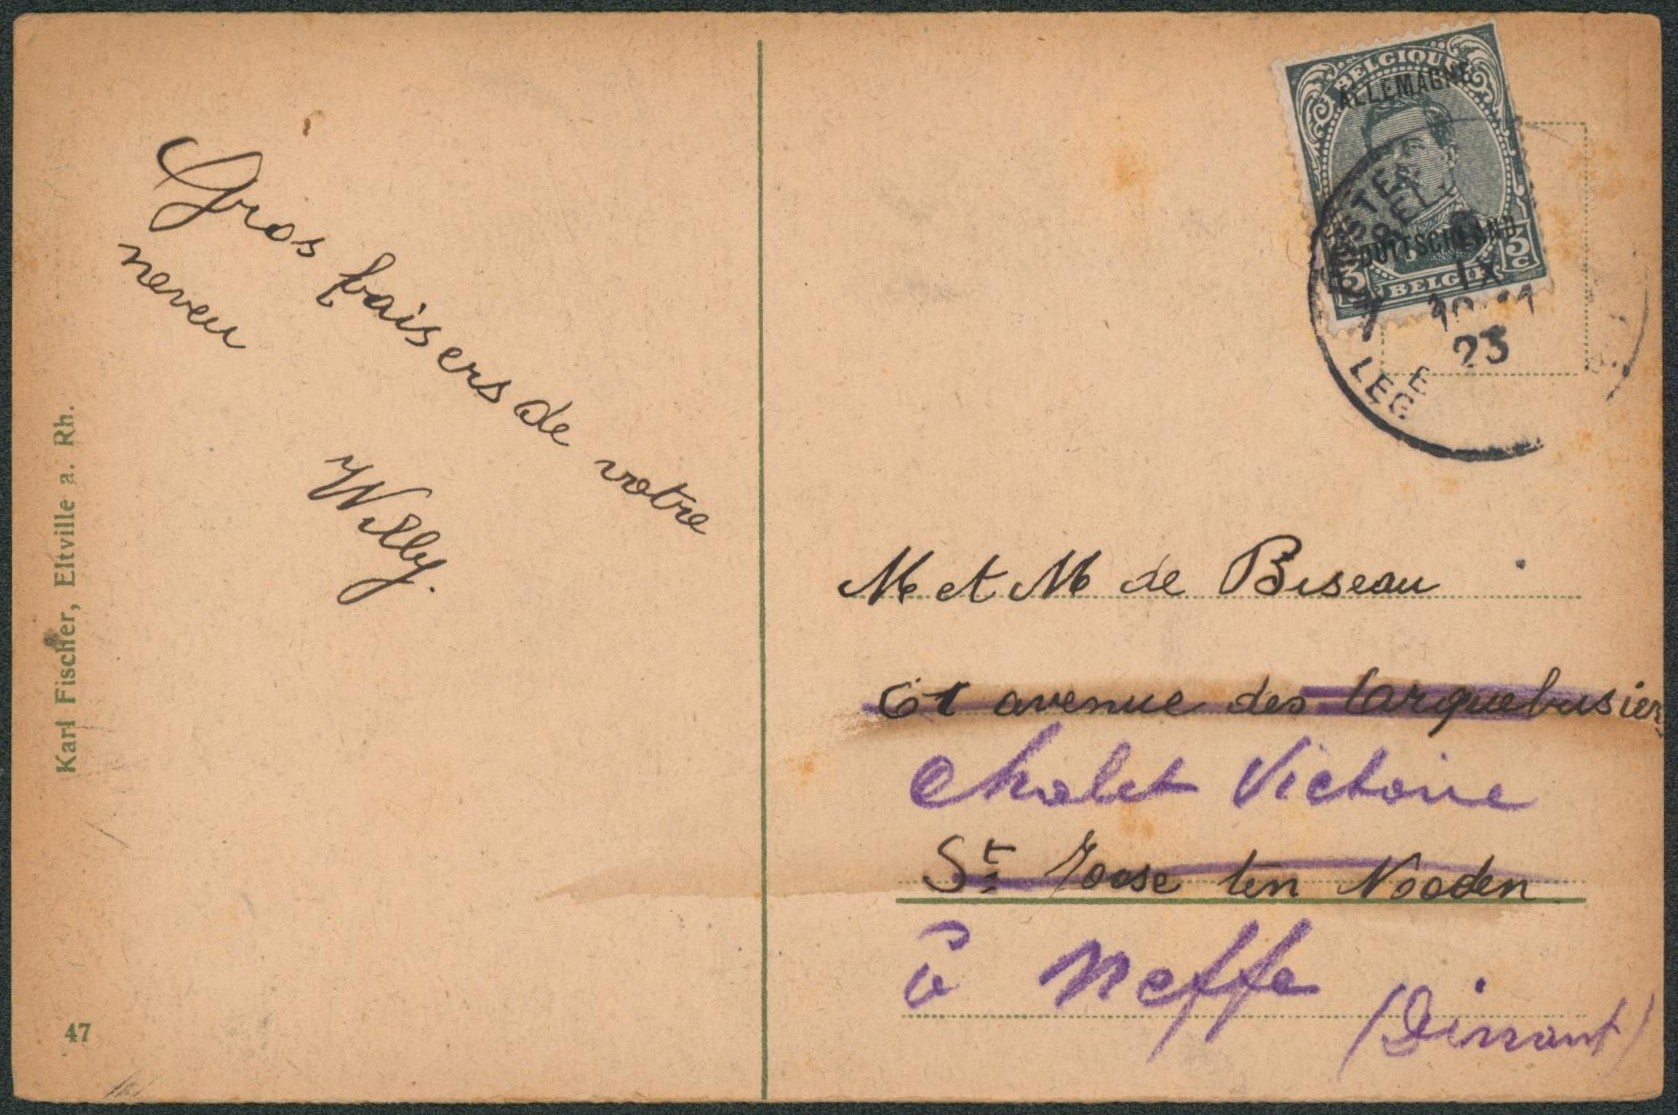 Gros baisers de votre
neveu
Willy.
Karl Fischer, Eltville a. Rh.
47
BELGIQUE
ALLEMAGNE
DUITSCHLAND
5 C
BELGIE
POSTES
IX
23
LEG
E
M et M de Biseau
61 avenue des larquebusier
Chalet Victoire
St Joose ten Nooden
à Neffe
(Dinant)